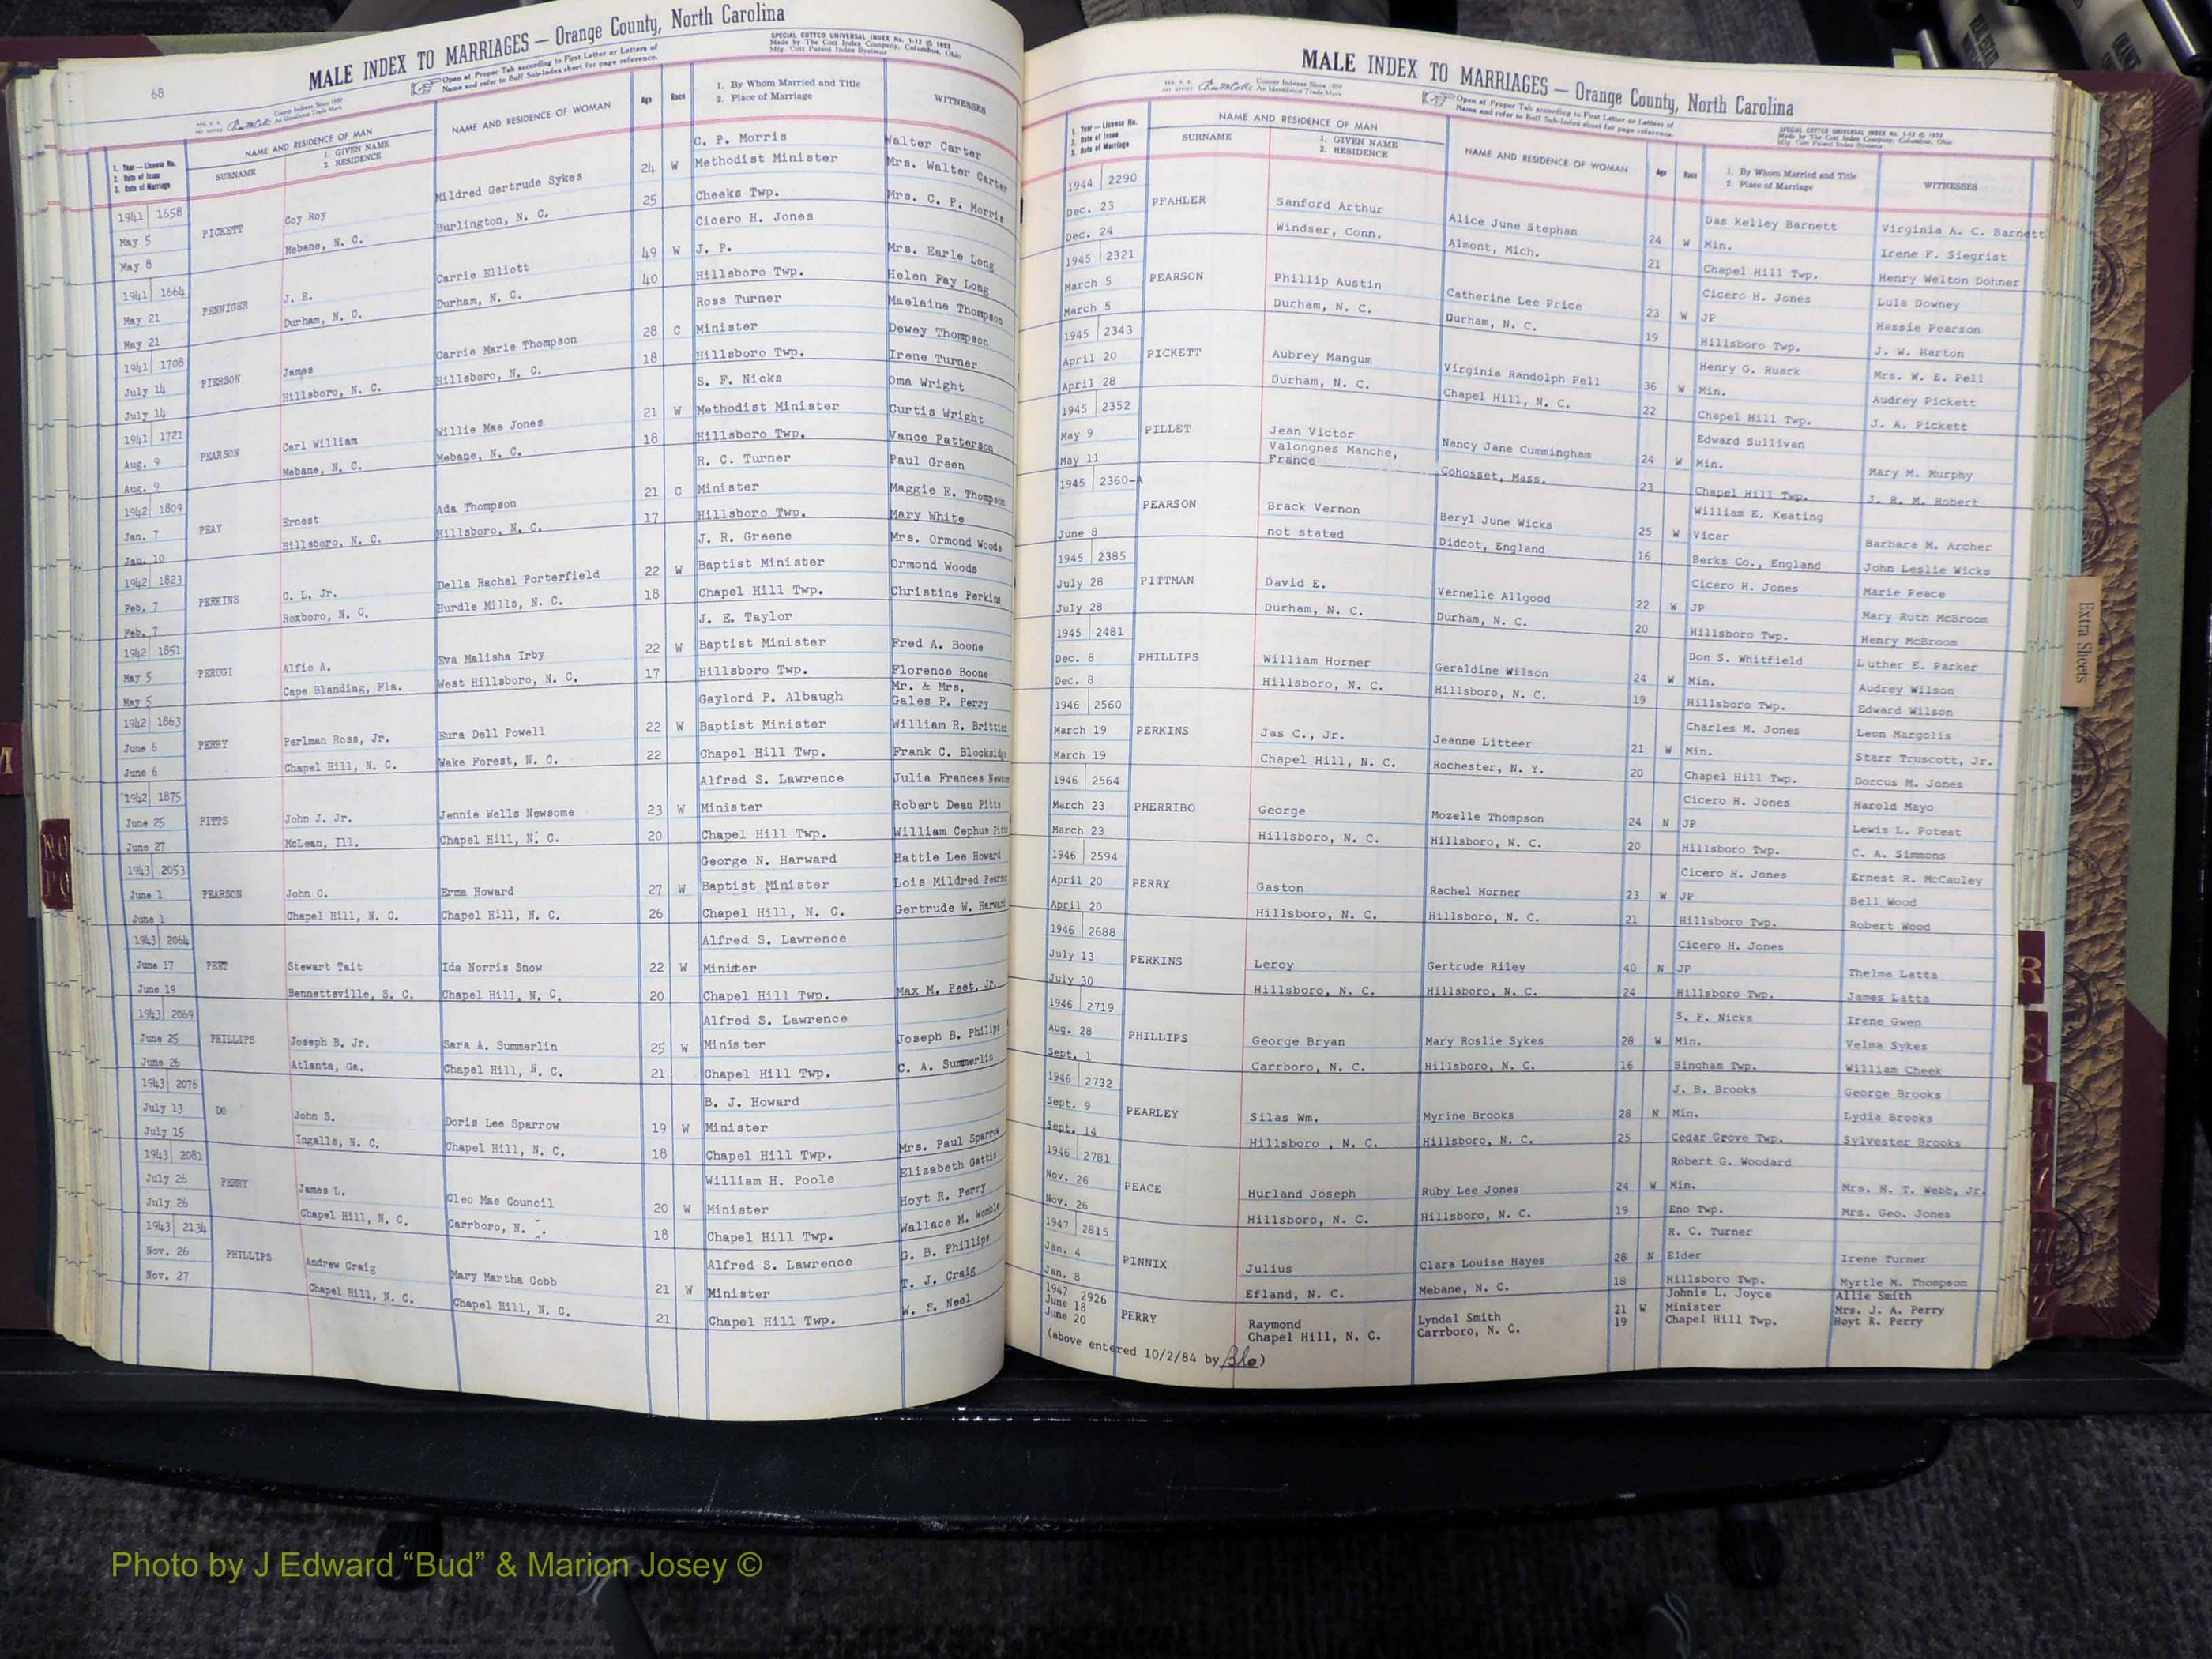 68
MALE INDEX TO MARRIAGES — Orange County, North Carolina
Open at Proper Tab according to First Letter or Letters of
Name and refer to Buff Sub-Index sheet for page reference.
SPECIAL COTTCO UNIVERSAL INDEX No. 1-12 © 1952
Made by The Cott Index Company, Columbus, Ohio
Mfg. Cott Patent Index Systems
County Indexes Since 1888
An Identification Trade Mark
1. Year — License No.
2. Date of Issue
3. Date of Marriage
NAME AND RESIDENCE OF MAN
SURNAME
1. GIVEN NAME
2. RESIDENCE
NAME AND RESIDENCE OF WOMAN
Age
Race
1. By Whom Married and Title
2. Place of Marriage
WITNESSES
1941 1658 C. P. Morris Walter Carter
May 5 PICKETT Coy Roy Mildred Gertrude Sykes 24 W Methodist Minister Mrs. Walter Carter
May 8 Mebane, N. C. Burlington, N. C. 25 Cheeks Twp. Mrs. C. P. Morris
1941 1664 Cicero H. Jones
May 21 PENNIGER J. E. Carrie Elliott 49 W J. P. Mrs. Earle Long
May 21 Durham, N. C. Durham, N. C. 40 Hillsboro Twp. Helen Fay Long
1941 1708 Ross Turner Maelaine Thompson
July 14 PIERSON James Carrie Marie Thompson 28 C Minister Dewey Thompson
July 14 Hillsboro, N. C. Hillsboro, N. C. 18 Hillsboro Twp. Irene Turner
1941 1721 S. F. Nicks Oma Wright
Aug. 9 PEARSON Carl William Willie Mae Jones 21 W Methodist Minister Curtis Wright
Aug. 9 Mebane, N. C. Mebane, N. C. 18 Hillsboro Twp. Vance Patterson
1942 1809 R. C. Turner Paul Green
Jan. 7 PEAY Ernest Ada Thompson 21 C Minister Maggie E. Thompson
Jan. 10 Hillsboro, N. C. Hillsboro, N. C. 17 Hillsboro Twp. Mary White
1942 1823 J. R. Greene Mrs. Ormond Woods
Feb. 7 PERKINS C. L. Jr. Della Rachel Porterfield 22 W Baptist Minister Ormond Woods
Feb. 7 Roxboro, N. C. Hurdle Mills, N. C. 18 Chapel Hill Twp. Christine Perkins
1942 1851 J. E. Taylor
May 5 PERUGI Alfio A. Eva Malisha Irby 22 W Baptist Minister Fred A. Boone
May 5 Cape Blanding, Fla. West Hillsboro, N. C. 17 Hillsboro Twp. Florence Boone
1942 1863 Gaylord P. Albaugh Mr. & Mrs.
Gales P. Perry
June 6 PERRY Perlman Ross, Jr. Eura Dell Powell 22 W Baptist Minister William R. Brittian
June 6 Chapel Hill, N. C. Wake Forest, N. C. 22 Chapel Hill Twp. Frank C. Blocksidge
1942 1875 Alfred S. Lawrence Julia Frances
June 25 PITTS John J. Jr. Jennie Wells Newsome 23 W Minister Robert Dean Pitts
June 27 McLean, Ill. Chapel Hill, N. C. 20 Chapel Hill Twp. William Cephus Pitts
1943 2053 George N. Harward Hattie Lee Howard
June 1 PEARSON John C. Erma Howard 27 W Baptist Minister Lois Mildred Pearson
June 1 Chapel Hill, N. C. Chapel Hill, N. C. 26 Chapel Hill, N. C. Gertrude W. Harward
1943 2064 Alfred S. Lawrence
June 17 PEET Stewart Tait Ida Norris Snow 22 W Minister
June 19 Bennettsville, S. C. Chapel Hill, N. C. 20 Chapel Hill Twp. Max M. Peet, Jr.
1943 2069 Alfred S. Lawrence
June 25 PHILLIPS Joseph B. Jr. Sara A. Summerlin 25 W Minister Joseph B. Philips
June 26 Atlanta, Ga. Chapel Hill, N. C. 21 Chapel Hill Twp. C. A. Summerlin
1943 2076 B. J. Howard
July 13 DO John S. Doris Lee Sparrow 19 W Minister
July 15 Ingalls, N. C. Chapel Hill, N. C. 18 Chapel Hill Twp. Mrs. Paul Sparrow
1943 2081 William H. Poole Elizabeth Gattis
July 26 PERRY James L. Cleo Mae Council 20 W Minister Hoyt R. Perry
July 26 Chapel Hill, N. C. Carrboro, N. C. 18 Chapel Hill Twp. Wallace M. Womble
1943 2134 Alfred S. Lawrence G. B. Phillips
Nov. 26 PHILLIPS Andrew Craig Mary Martha Cobb 21 W Minister T. J. Craig
Nov. 27 Chapel Hill, N. C. Chapel Hill, N. C. 21 Chapel Hill Twp. W. S. Neel
MALE INDEX TO MARRIAGES — Orange County, North Carolina
County Indexes Since 1888
An Identification Trade Mark
Open at Proper Tab according to First Letter or Letters of
Name and refer to Buff Sub-Index sheet for page reference.
SPECIAL COTTCO UNIVERSAL INDEX No. 1-12 © 1952
Made by The Cott Index Company, Columbus, Ohio
Mfg. Cott Patent Index Systems
1. Year — License No.
2. Date of Issue
3. Date of Marriage
NAME AND RESIDENCE OF MAN
SURNAME
1. GIVEN NAME
2. RESIDENCE
NAME AND RESIDENCE OF WOMAN
Age
Race
1. By Whom Married and Title
2. Place of Marriage
WITNESSES
1944 2290 Das Kelley Barnett Virginia A. C. Barnett
Dec. 23 PFAHLER Sanford Arthur Alice June Stephan 24 W Min. Irene F. Siegrist
Dec. 24 Windser, Conn. Almont, Mich. 21 Chapel Hill Twp. Henry Welton Dohner
1945 2321 Cicero H. Jones Lula Downey
March 5 PEARSON Phillip Austin Catherine Lee Price 23 W JP Hassie Pearson
March 5 Durham, N. C. Durham, N. C. 19 Hillsboro Twp. J. W. Harton
1945 2343 Henry G. Ruark Mrs. W. E. Pell
April 20 PICKETT Aubrey Mangum Virginia Randolph Pell 36 W Min. Audrey Pickett
April 28 Durham, N. C. Chapel Hill, N. C. 22 Chapel Hill Twp. J. A. Pickett
1945 2352 Edward Sullivan
May 9 PILLET Jean Victor Nancy Jane Cummingham 24 W Min. Mary M. Murphy
May 11 Valongnes Manche,
France Cohosset, Mass. 23 Chapel Hill Twp. J. R. M. Robert
1945 2360-A William E. Keating
PEARSON Brack Vernon Beryl June Wicks 25 W Vicar Barbara M. Archer
June 8 not stated Didcot, England 16 Berks Co., England John Leslie Wicks
1945 2385 Cicero H. Jones Marie Peace
July 28 PITTMAN David E. Vernelle Allgood 22 W JP Mary Ruth McBroom
July 28 Durham, N. C. Durham, N. C. 20 Hillsboro Twp. Henry McBroom
1945 2481 Don S. Whitfield Luther E. Parker
Dec. 8 PHILLIPS William Horner Geraldine Wilson 24 W Min. Audrey Wilson
Dec. 8 Hillsboro, N. C. Hillsboro, N. C. 19 Hillsboro Twp. Edward Wilson
1946 2560 Charles M. Jones Leon Margolis
March 19 PERKINS Jas C., Jr. Jeanne Litteer 21 W Min. Starr Truscott, Jr.
March 19 Chapel Hill, N. C. Rochester, N. Y. 20 Chapel Hill Twp. Dorcus M. Jones
1946 2564 Cicero H. Jones Harold Mayo
March 23 PHERRIBO George Mozelle Thompson 24 N JP Lewis L. Poteat
March 23 Hillsboro, N. C. Hillsboro, N. C. 20 Hillsboro Twp. C. A. Simmons
1946 2594 Cicero H. Jones Ernest R. McCauley
April 20 PERRY Gaston Rachel Horner 23 W JP Bell Wood
April 20 Hillsboro, N. C. Hillsboro, N. C. 21 Hillsboro Twp. Robert Wood
1946 2688 Cicero H. Jones
July 13 PERKINS Leroy Gertrude Riley 40 N JP Thelma Latta
July 30 Hillsboro, N. C. Hillsboro, N. C. 24 Hillsboro Twp. James Latta
1946 2719 S. F. Nicks Irene Gwen
Aug. 28 PHILLIPS George Bryan Mary Roslie Sykes 28 W Min. Velma Sykes
Sept. 1 Carrboro, N. C. Hillsboro, N. C. 16 Bingham Twp. William Cheek
1946 2732 J. B. Brooks George Brooks
Sept. 9 PEARLEY Silas Wm. Myrine Brooks 28 N Min. Lydia Brooks
Sept. 14 Hillsboro , N. C. Hillsboro, N. C. 25 Cedar Grove Twp. Sylvester Brooks
1946 2781 Robert G. Woodard
Nov. 26 PEACE Hurland Joseph Ruby Lee Jones 24 W Min. Mrs. H. T. Webb, Jr.
Nov. 26 Hillsboro, N. C. Hillsboro, N. C. 19 Eno Twp. Mrs. Geo. Jones
1947 2815 R. C. Turner
Jan. 4 PINNIX Julius Clara Louise Hayes 26 N Elder Irene Turner
Jan. 8 Efland, N. C. Mebane, N. C. 18 Hillsboro Twp. Myrtle M. Thompson
1947 2926 Johnie L. Joyce Allie Smith
June 18 PERRY Raymond Lyndal Smith 21 W Minister Mrs. J. A. Perry
June 20 Chapel Hill, N. C. Carrboro, N. C. 19 Chapel Hill Twp. Hoyt R. Perry
(above entered 10/2/84 by )
Extra Sheets
N O
P Q
R
S
Photo by J Edward “Bud” & Marion Josey ©